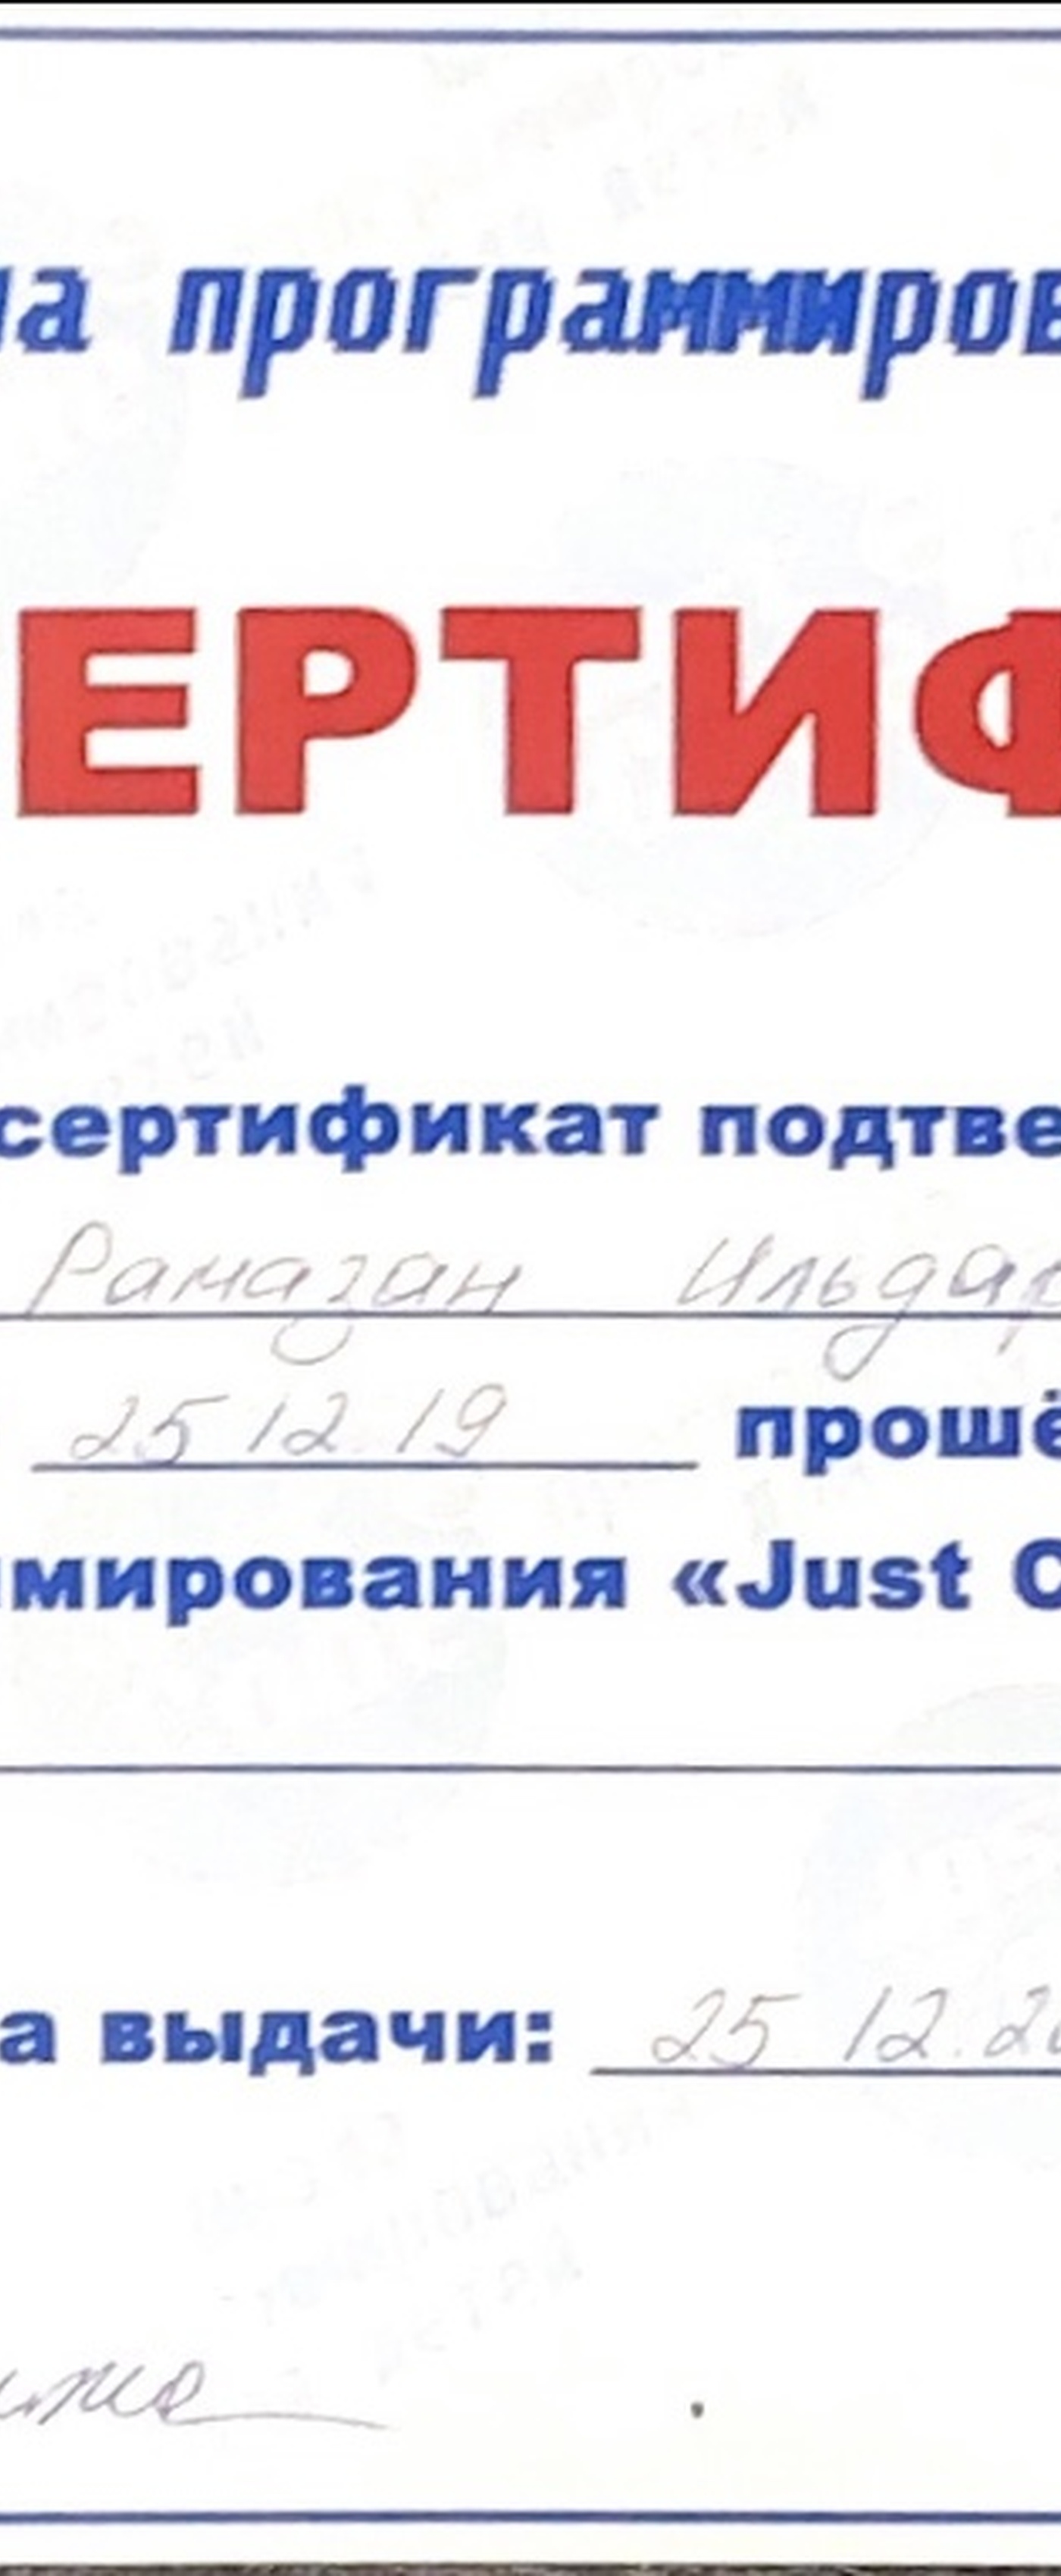 на программиров
ЕРТИФ
сертификат подтве
Рамазан Ильдар
25 12 19 прошё
ммирования «Just C
а выдачи: 25.12.20